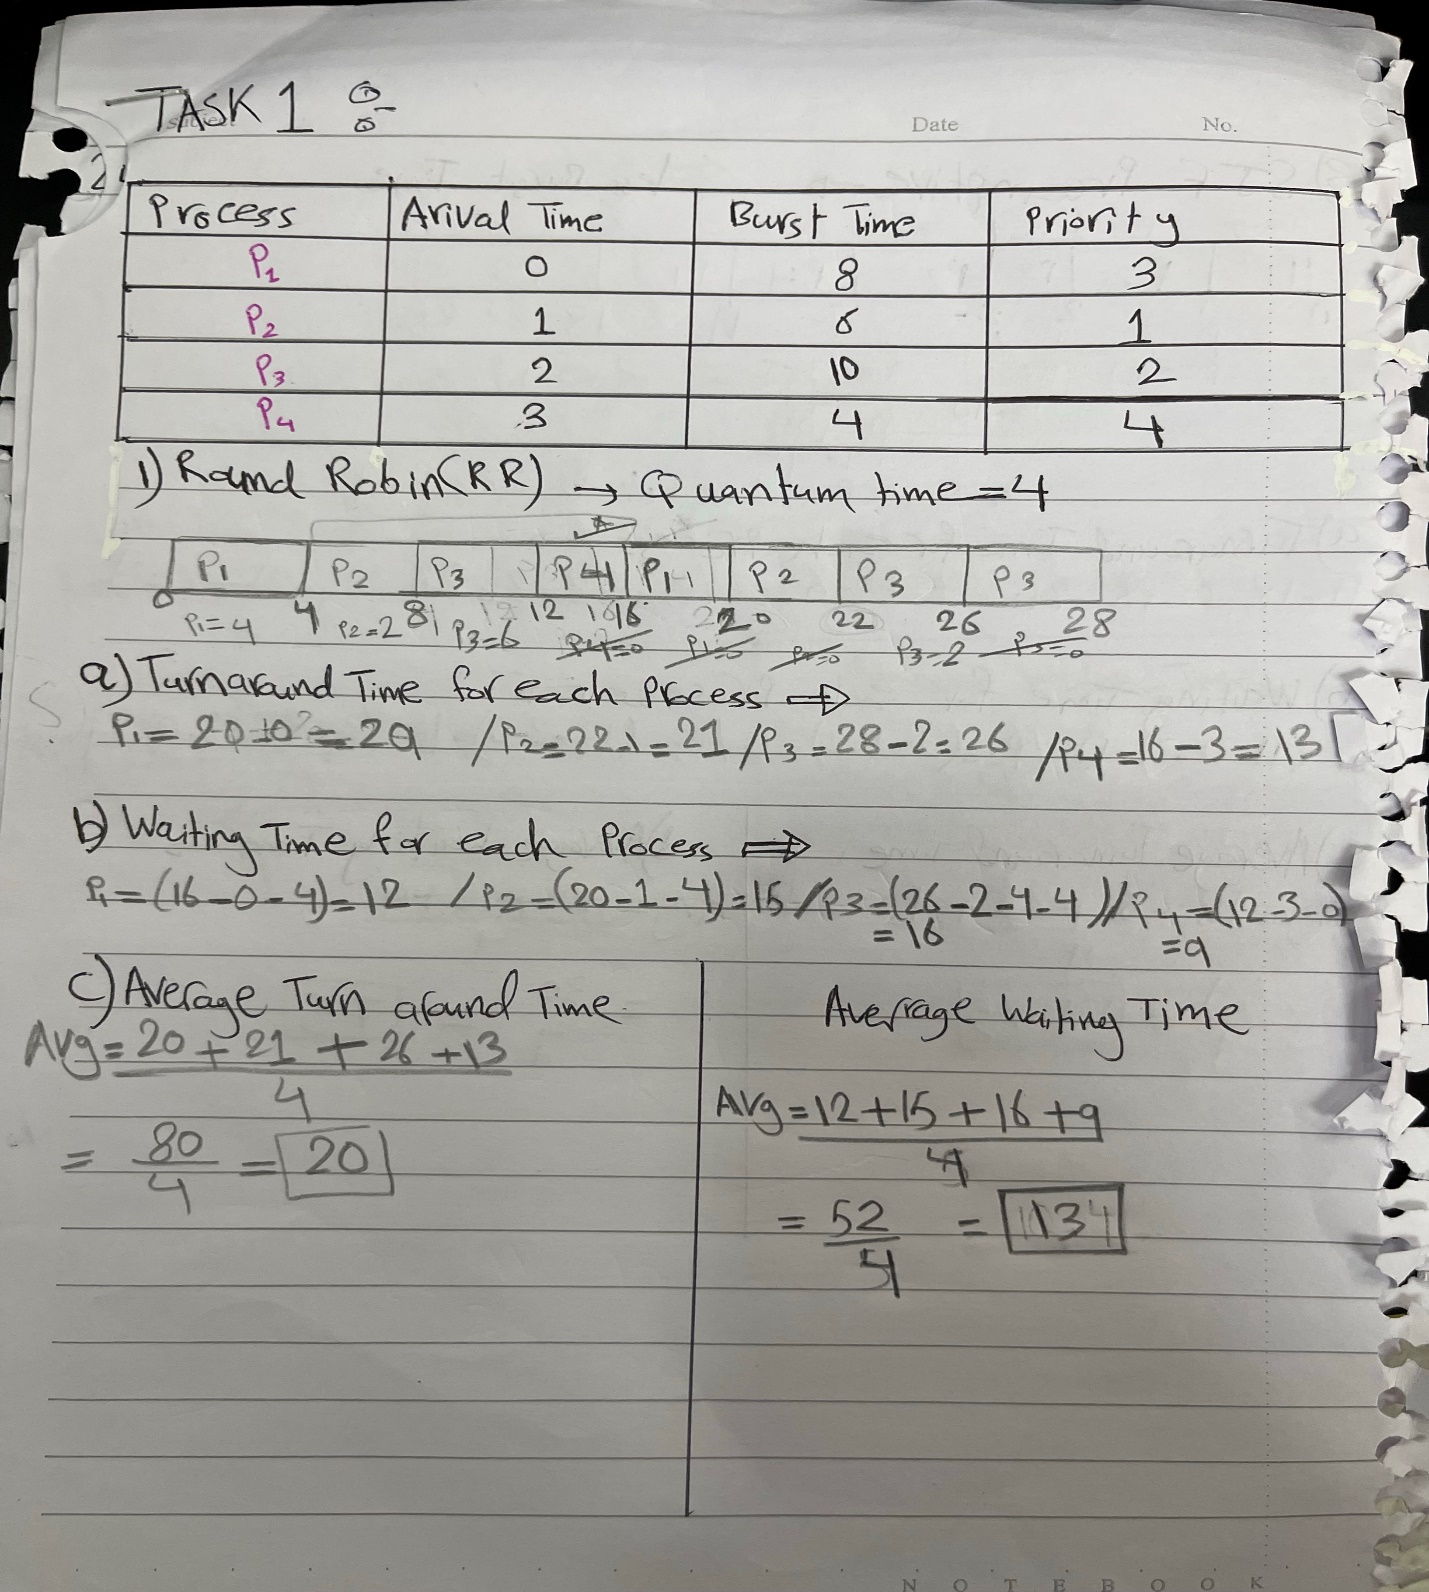 TASK 1 :-
Subject
Date
No.
2
Process Arival Time Burst Time Priority
P1 0 8 3
P2 1 6 1
P3 2 10 2
P4 3 4 4
1) Round Robin(RR) → Quantum time = 4
P1 P2 P3 P4 P1 P2 P3 P3
0 4 8 12 16 20 22 26 28
P1=4 P2=2 P3=6 P4=0 P1=0 P2=0 P3=2 P3=0
a) Turnaround Time for each Process ⇒
P1= 20-0 = 20 / P2=22-1=21 / P3=28-2=26 / P4=16-3=13
b) Waiting Time for each Process ⇒
P1=(16-0-4)=12 / P2=(20-1-4)=15 / P3=(26-2-4-4) / P4=(12-3-0)
=16 =9
c) Average Turn around Time
Avg= 20+21+26+13
4
= 80
4
= 20
Average Waiting Time
Avg=12+15+16+9
4
= 52
4
= 13
NOTEBOOK